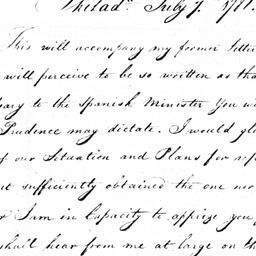 Philad.ᵃ July 7. 1781.
This will accompany my former Letter
will perceive to be so written as tha
sary to the Spanish Minister You wi
Prudence may dictate. I would gl
of our Situation and Plans for
ut sufficiently obtained the one nor
r I am in Capacity to apprize you
shall hear from me at large on th